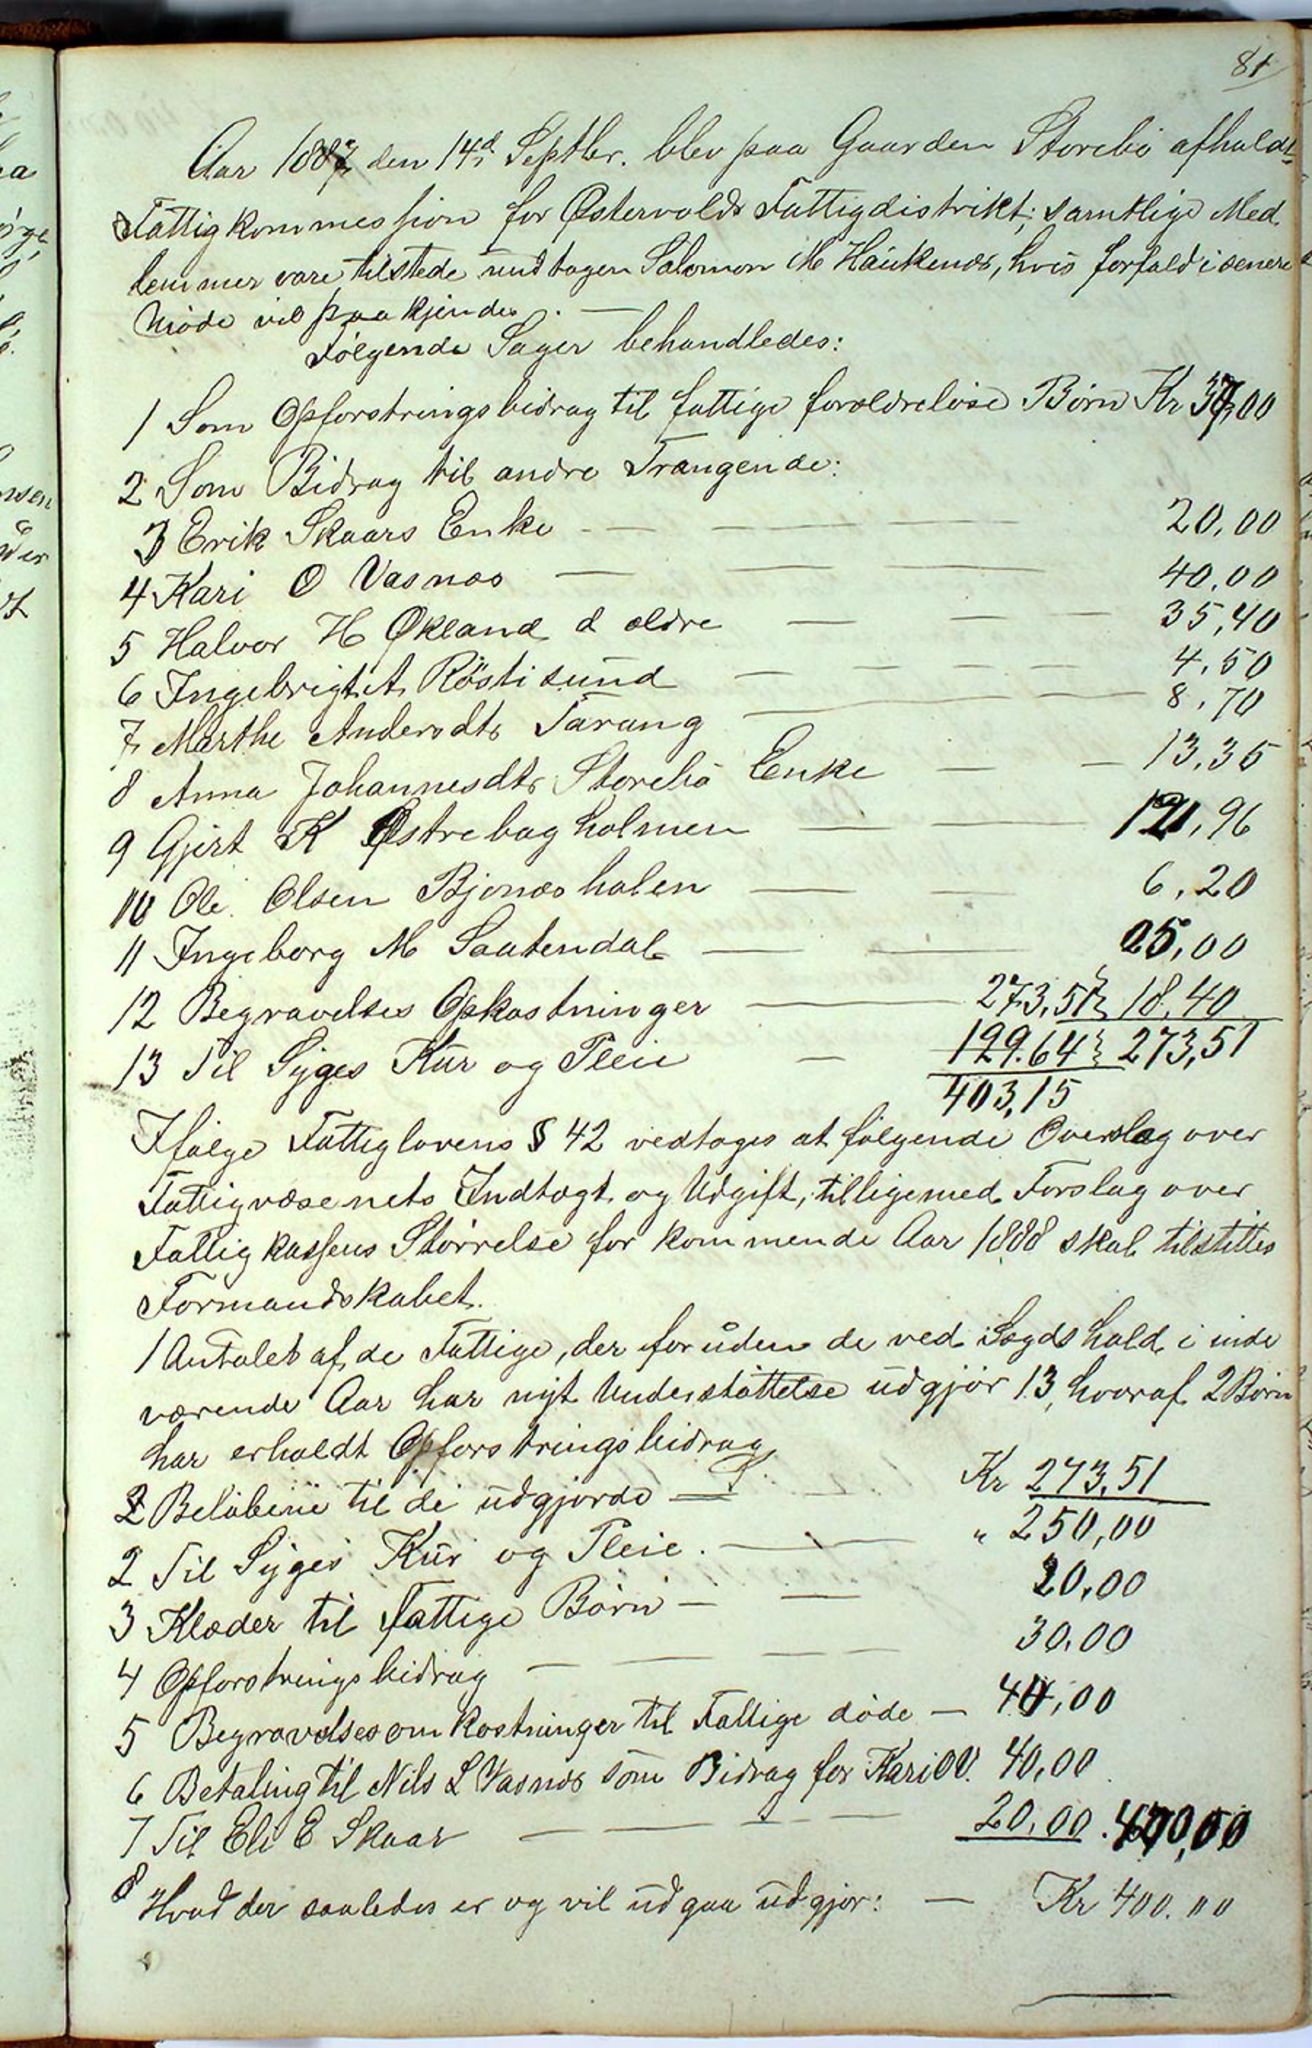 81
Aar 1887 den 14d Septbr. blev paa Gaarden Storebö afholdt
Fattigkommession for Østervolds Fattigdistrikt; samtlige Med
lemmer vare tilstede undtagen Salomon M Haukenæs, hvis forfald i senere
Møde vil paakjendes. —
Følgende Sager behandledes:
1 Som Opforstringsbidrag til fattige forældreløse Børn Kr 37,00
2 Som Bidrag til andre Trængende:
3 Erik Skaars Enke — 20,00
4 Kari O Vasnæs — 40,00
5 Halvor H Økland d ældre — 35,40
6 Ingebrigt A. Röstisund — 4,50
7 Marthe Andersdtr Tarang — 8,70
8 Anna Johannesdtr Storebö Enke — 13,35
9 Gjert K Østrebagholmen — 121,96
10 Ole Olsen Bjonæshalen — 6,20
11 Ingeborg M Saatendal — 25,00
12 Begravelses Opkostninger — 273,51 18,40
13 Til Syges Kur og Pleie — 129.64 273,51
403,15
Ifølge Fattiglovens § 42 vedtoges at følgende Overslag over
Fattigvæsenets Indtægt og Udgift, tilligemed Forslag over
Fattigkassens Størrelse for kommende Aar 1888 skal tilstilles
Formandskabet.
1 Antalet af de Fattige, der foruden de ved Lægdshold i inde
værende Aar har nyt Understøttelse udgjør 13, hvoraf 2 Børn
har erholdt Opforstringsbidrag
2 Beløbene til de udgjorde — Kr 273,51
2 Til Syges Kur og Pleie. — " 250,00
3 Klæder til fattige Børn — 20,00
4 Opforstringsbidrag — 30,00
5 Begravelsesomkostninger til Fattige døde — 40,00
6 Betaling til Nils L Vasnæs som Bidrag for Kari O V. 40,00
7 Til Eli E Skaar — 20,00. 400,00
8 Hvad der saaledes er og vil udgaa udgjør: — Kr 400.00